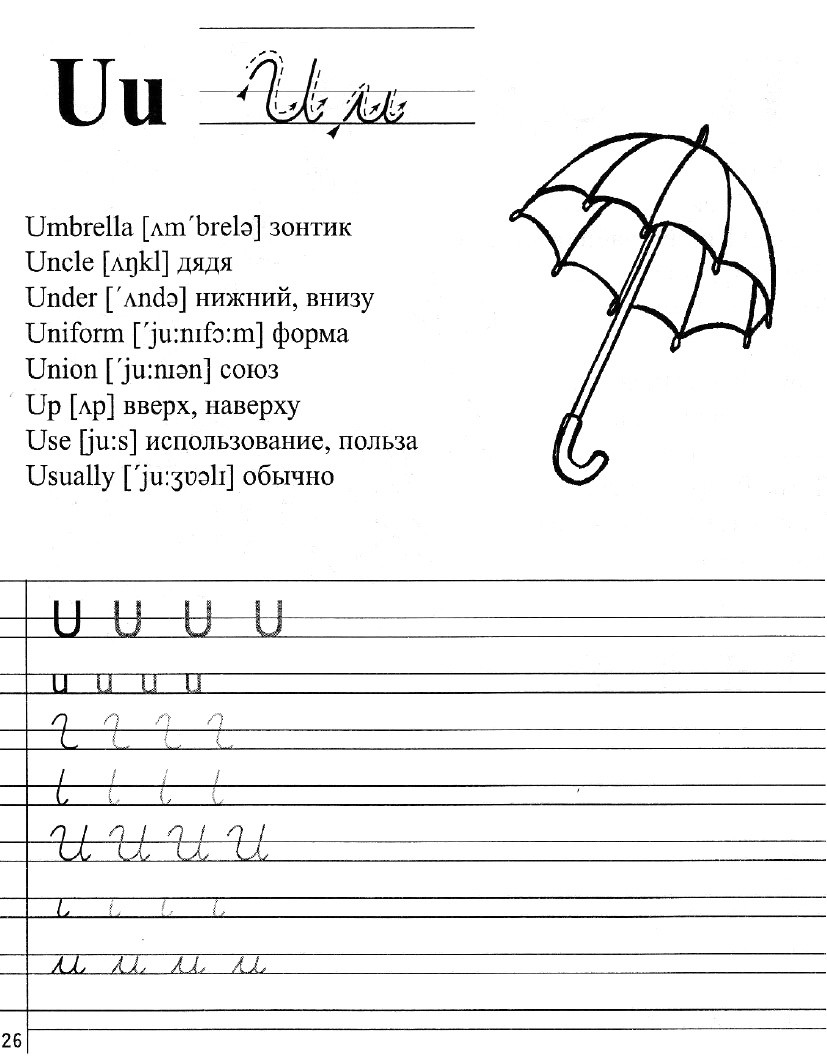 Uu U u
Umbrella [ʌm´brelə] зонтик
Uncle [ʌŋkl] дядя
Under [´ʌndə] нижний, внизу
Uniform [´ju:nɪfɔ:m] форма
Union [´ju:nɪən] союз
Up [ʌp] вверх, наверху
Use [ju:s] использование, польза
Usually [´ju:ʒʊəlɪ] обычно
U U U U
u u u u
U U U U
u u u u
26